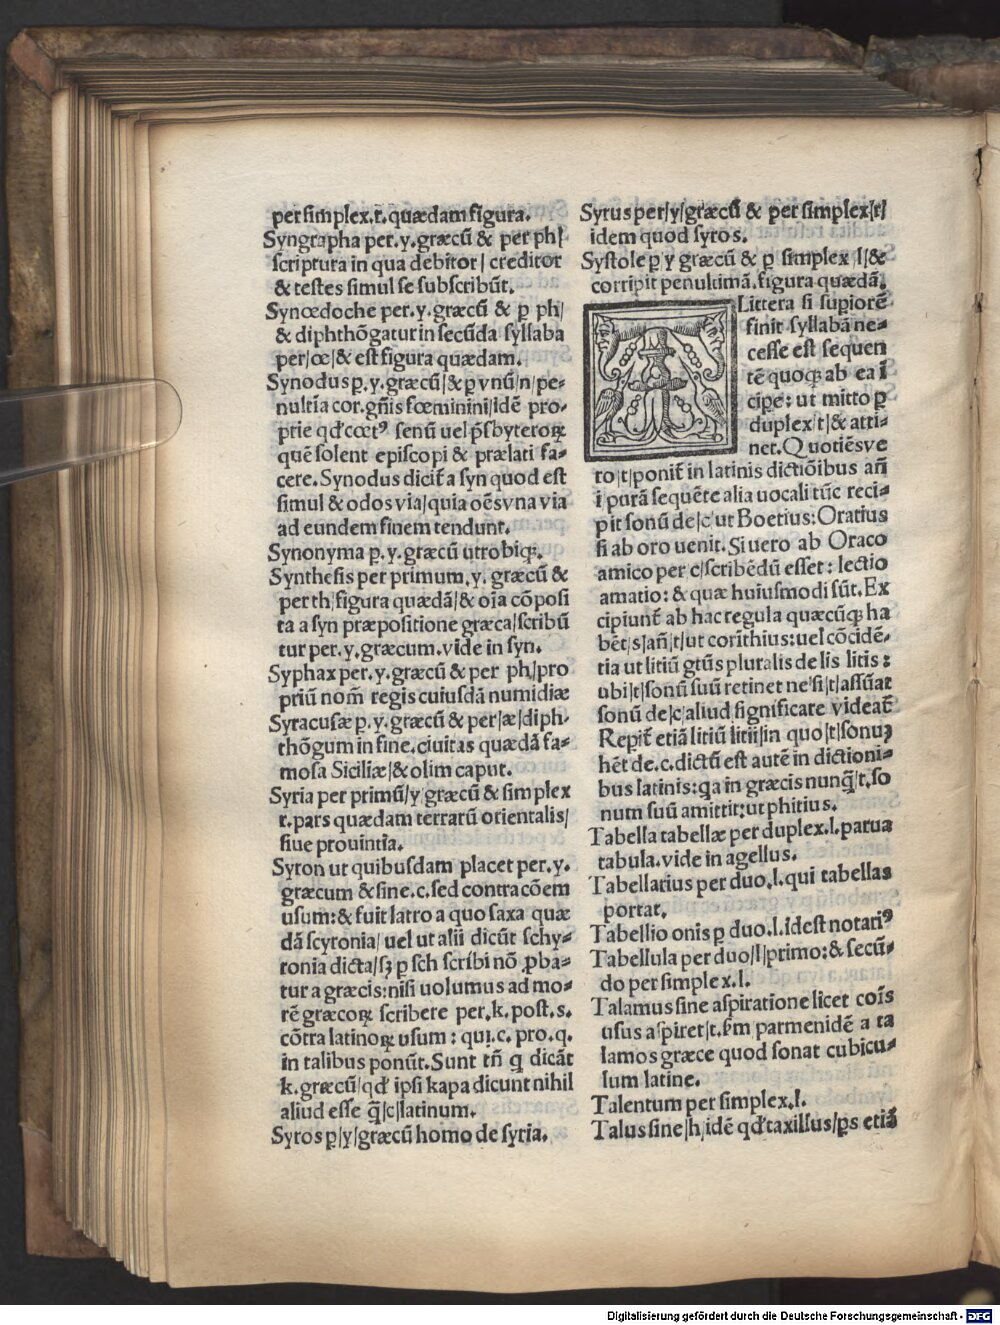 per simplex.t. quædam figura.
Syngrapha per.y.græcū & per ph/
scriptura in qua debitor/ creditor
& testes simul se subscribūt.
Synœdoche per.y.græcū & p̱ ph/
& diphthōgatur in secūda syllaba
per/œ/& est figura quædam.
Synodus p̱.y.græcū/& p̱ vnū/n/pe⸗
nultīa cor.gñis fœminini/idē pro⸗
prie qđ cœtꝰ senū uel p̄sbyteroꝝ
quē solent episcopi & prælati fa⸗
cere. Synodus dicit̄ a syn quod est
simul & odos via/quia oēs vna via
ad eundem finem tendunt.
Synonyma p̱.y.græcū utrobiqꝫ.
Synthesis per primum.y. græcū &
per th/figura quædā/& oīa cōposi
ta a syn præpositione græca/scribū
tur per.y.græcum.vide in syn.
Syphax per.y.græcū & per ph/pro
priū nom̄ regis cuiusdā numidiæ
Syracusæ p̱.y.græcū & per/æ/diph⸗
thōgum in fine.ciuitas quædā fa⸗
mosa Siciliæ/& olim caput.
Syria per primū/y/græcū & simplex
r.pars quædam terrarū orientalis/
siue prouintia.
Syron ut quibusdam placet per.y.
græcum & sine.c.sed contra cōem
usum:& fuit latro a quo saxa quæ
dā scyronia/ uel ut alii dicūt schy⸗
ronia dicta/sꝫ p̱ sch scribi nō ꝓba⸗
tur a græcis:nisi uolumus ad mo⸗
rē græcoꝝ scribere per.k.post.s.
cōtra latinoꝝ usum : qui.c. pro.q.
in talibus ponūt. Sunt tñ q dicāt
k.græcū/qđ ipsi kapa dicunt nihil
aliud esse q̄/c/latinum.
Syros p̱/y/græcū homo de syria.
Syrus per/y/græcū & per simplex/r/
idem quod syros.
Systole p̱ y græcū & p̱ simplex /l/&
corripit penultimā.figura quædā.
T Littera si sup̱iorē
finit syllabā ne⸗
cesse est sequen
tē quoqꝫ ab ea ī
cip̱e: ut mitto p̱
duplex/t/& atti⸗
net. Quotiēs ve
ro/t/ponit̄ in latinis dictiōibus añ
i purā sequēte alia uocali tūc reci⸗
pit sonū de/c/ut Boetius:Oratius
si ab oro uenit. Si uero ab Oraco
amico per c/scribēdū esset : lectio
amatio: & quæ huiusmodi sūt. Ex
cipiunt̄ ab hac regula quæcūqꝫ ha
bēt/s/añ/t/ut corīthius:uel cōcidē⸗
tia ut litiū gtūs pluralis de lis litis :
ubi/t/sonū suū retinet ne si/t/assūat
sonū de/c/aliud significare videat̄
Rep̱it̄ etiā litiū litii/in quo/t/sonuꝫ
hēt de.c.dictū est autē in dictioni⸗
bus latinis:qa in græcis nunq̄/t/so
num suū amittit:ut phitius.
Tabella tabellæ per duplex.l.parua
tabula.vide in agellus.
Tabellarius per duo.l.qui tabellas
portat.
Tabellio onis p̱ duo.l.idest notariꝰ
Tabellula per duo/l/primo:& secū⸗
do per simplex.l.
Talamus sine aspiratione licet coīs
usus aspiret/t.s̄m parmenidē a ta
lamos græce quod sonat cubicu⸗
lum latine.
Talentum per simplex.l.
Talus sine/h/idē qđ taxillus/p̱s etiā
Digitalisierung gefördert durch die Deutsche Forschungsgemeinschaft - DFG